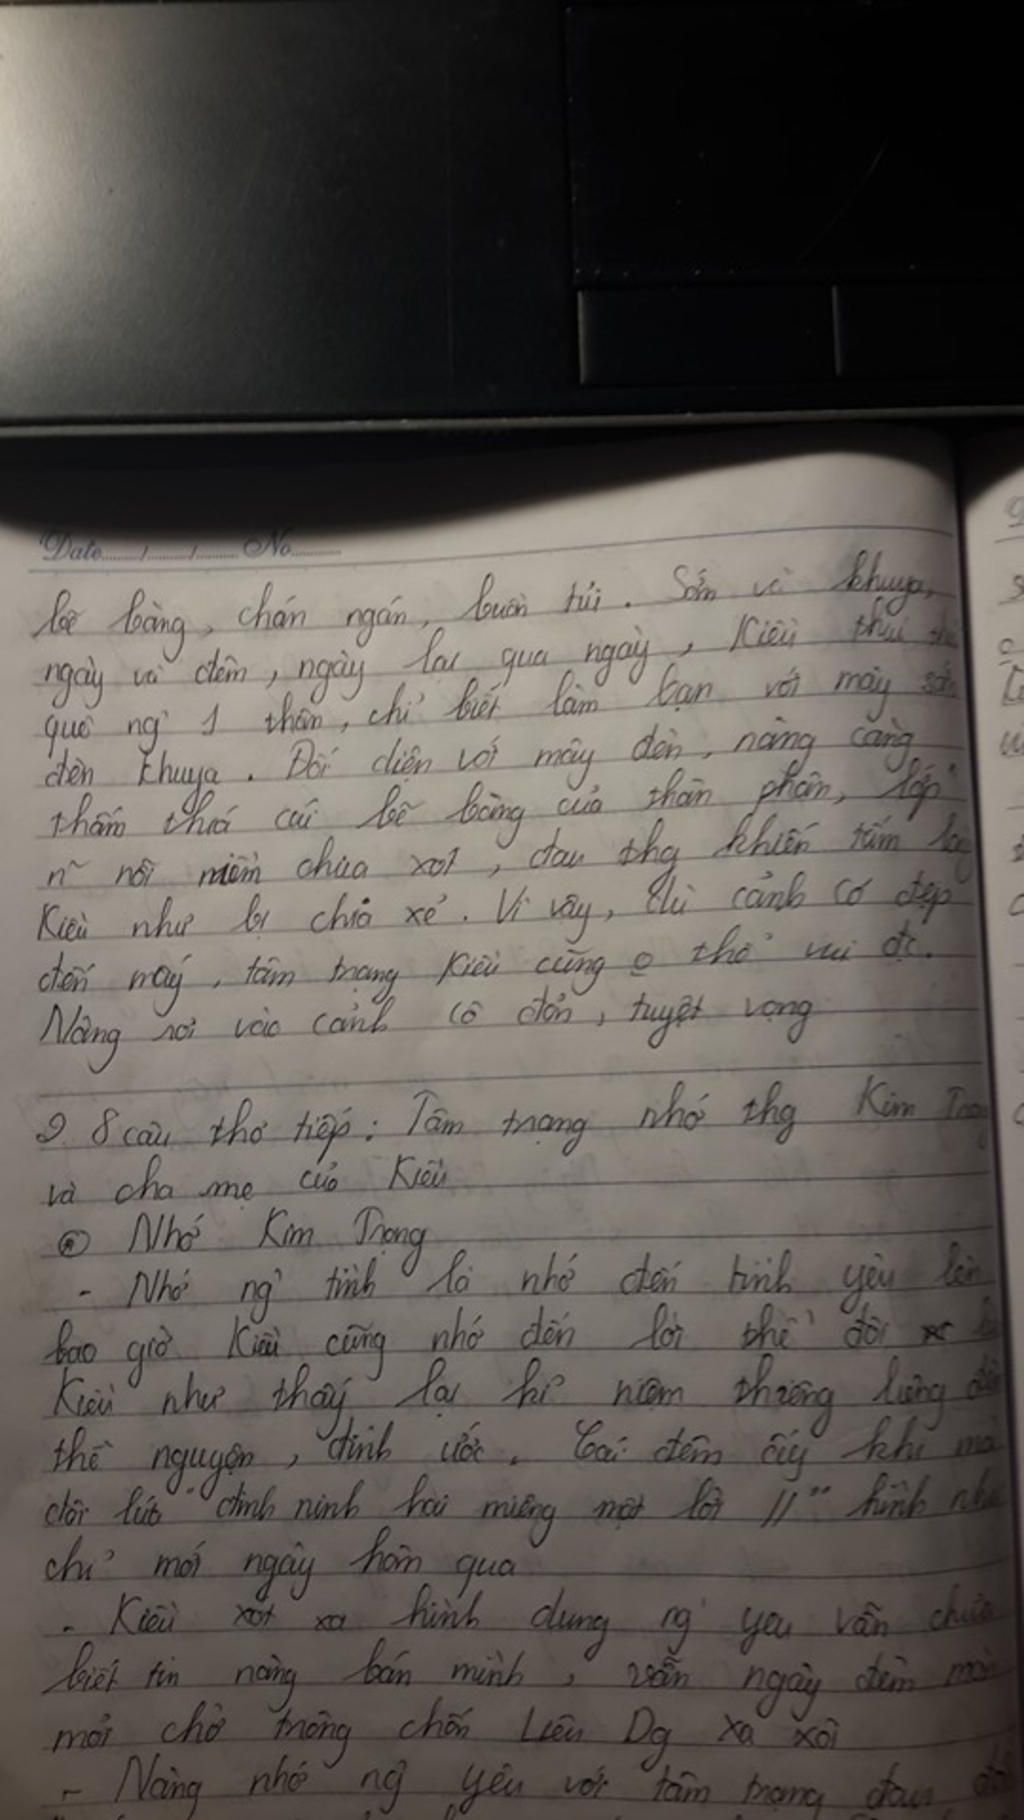 Date No
bẽ bàng, chán ngán, buồn tủi. Sớm và khuya,
ngày và đêm, ngày lại qua ngày, Kiều thui
quê ng' 1 thân, chỉ biết làm bạn với mây sớm
đèn khuya. Đối diện với mây đèn, nàng càng
thấm thía cái bẽ bàng của thân phận, lớp
n~ nỗi niềm chua xót, đau thg khiến tấm lòng
Kiều như bị chia xẻ. Vì vậy, dù cảnh có đẹp
đến mấy, tâm trạng Kiều cũng o thể vui đc.
Nàng rơi vào cảnh cô đơn, tuyệt vọng
2. 8 câu thơ tiếp: Tâm trạng nhớ thg Kim Trọng
và cha mẹ của Kiều
Nhớ Kim Trọng
- Nhớ ng' tình là nhớ đến tình yêu lên
bao giờ Kiều cũng nhớ đến lời thề đôi
Kiều như thấy lại kỉ niệm thiêng liêng đêm
thề nguyện, đính ước. Cái đêm ấy khi mà
đôi lứa "đinh ninh hai miệng một lời //" hình như
chỉ mới ngày hôm qua
- Kiều xót xa hình dung ng' yêu vẫn chưa
biết tin nàng bán mình, vẫn ngày đêm mòn
mỏi chờ trông chốn Liêu Dg xa xôi
- Nàng nhớ ng' yêu với tâm trạng đau